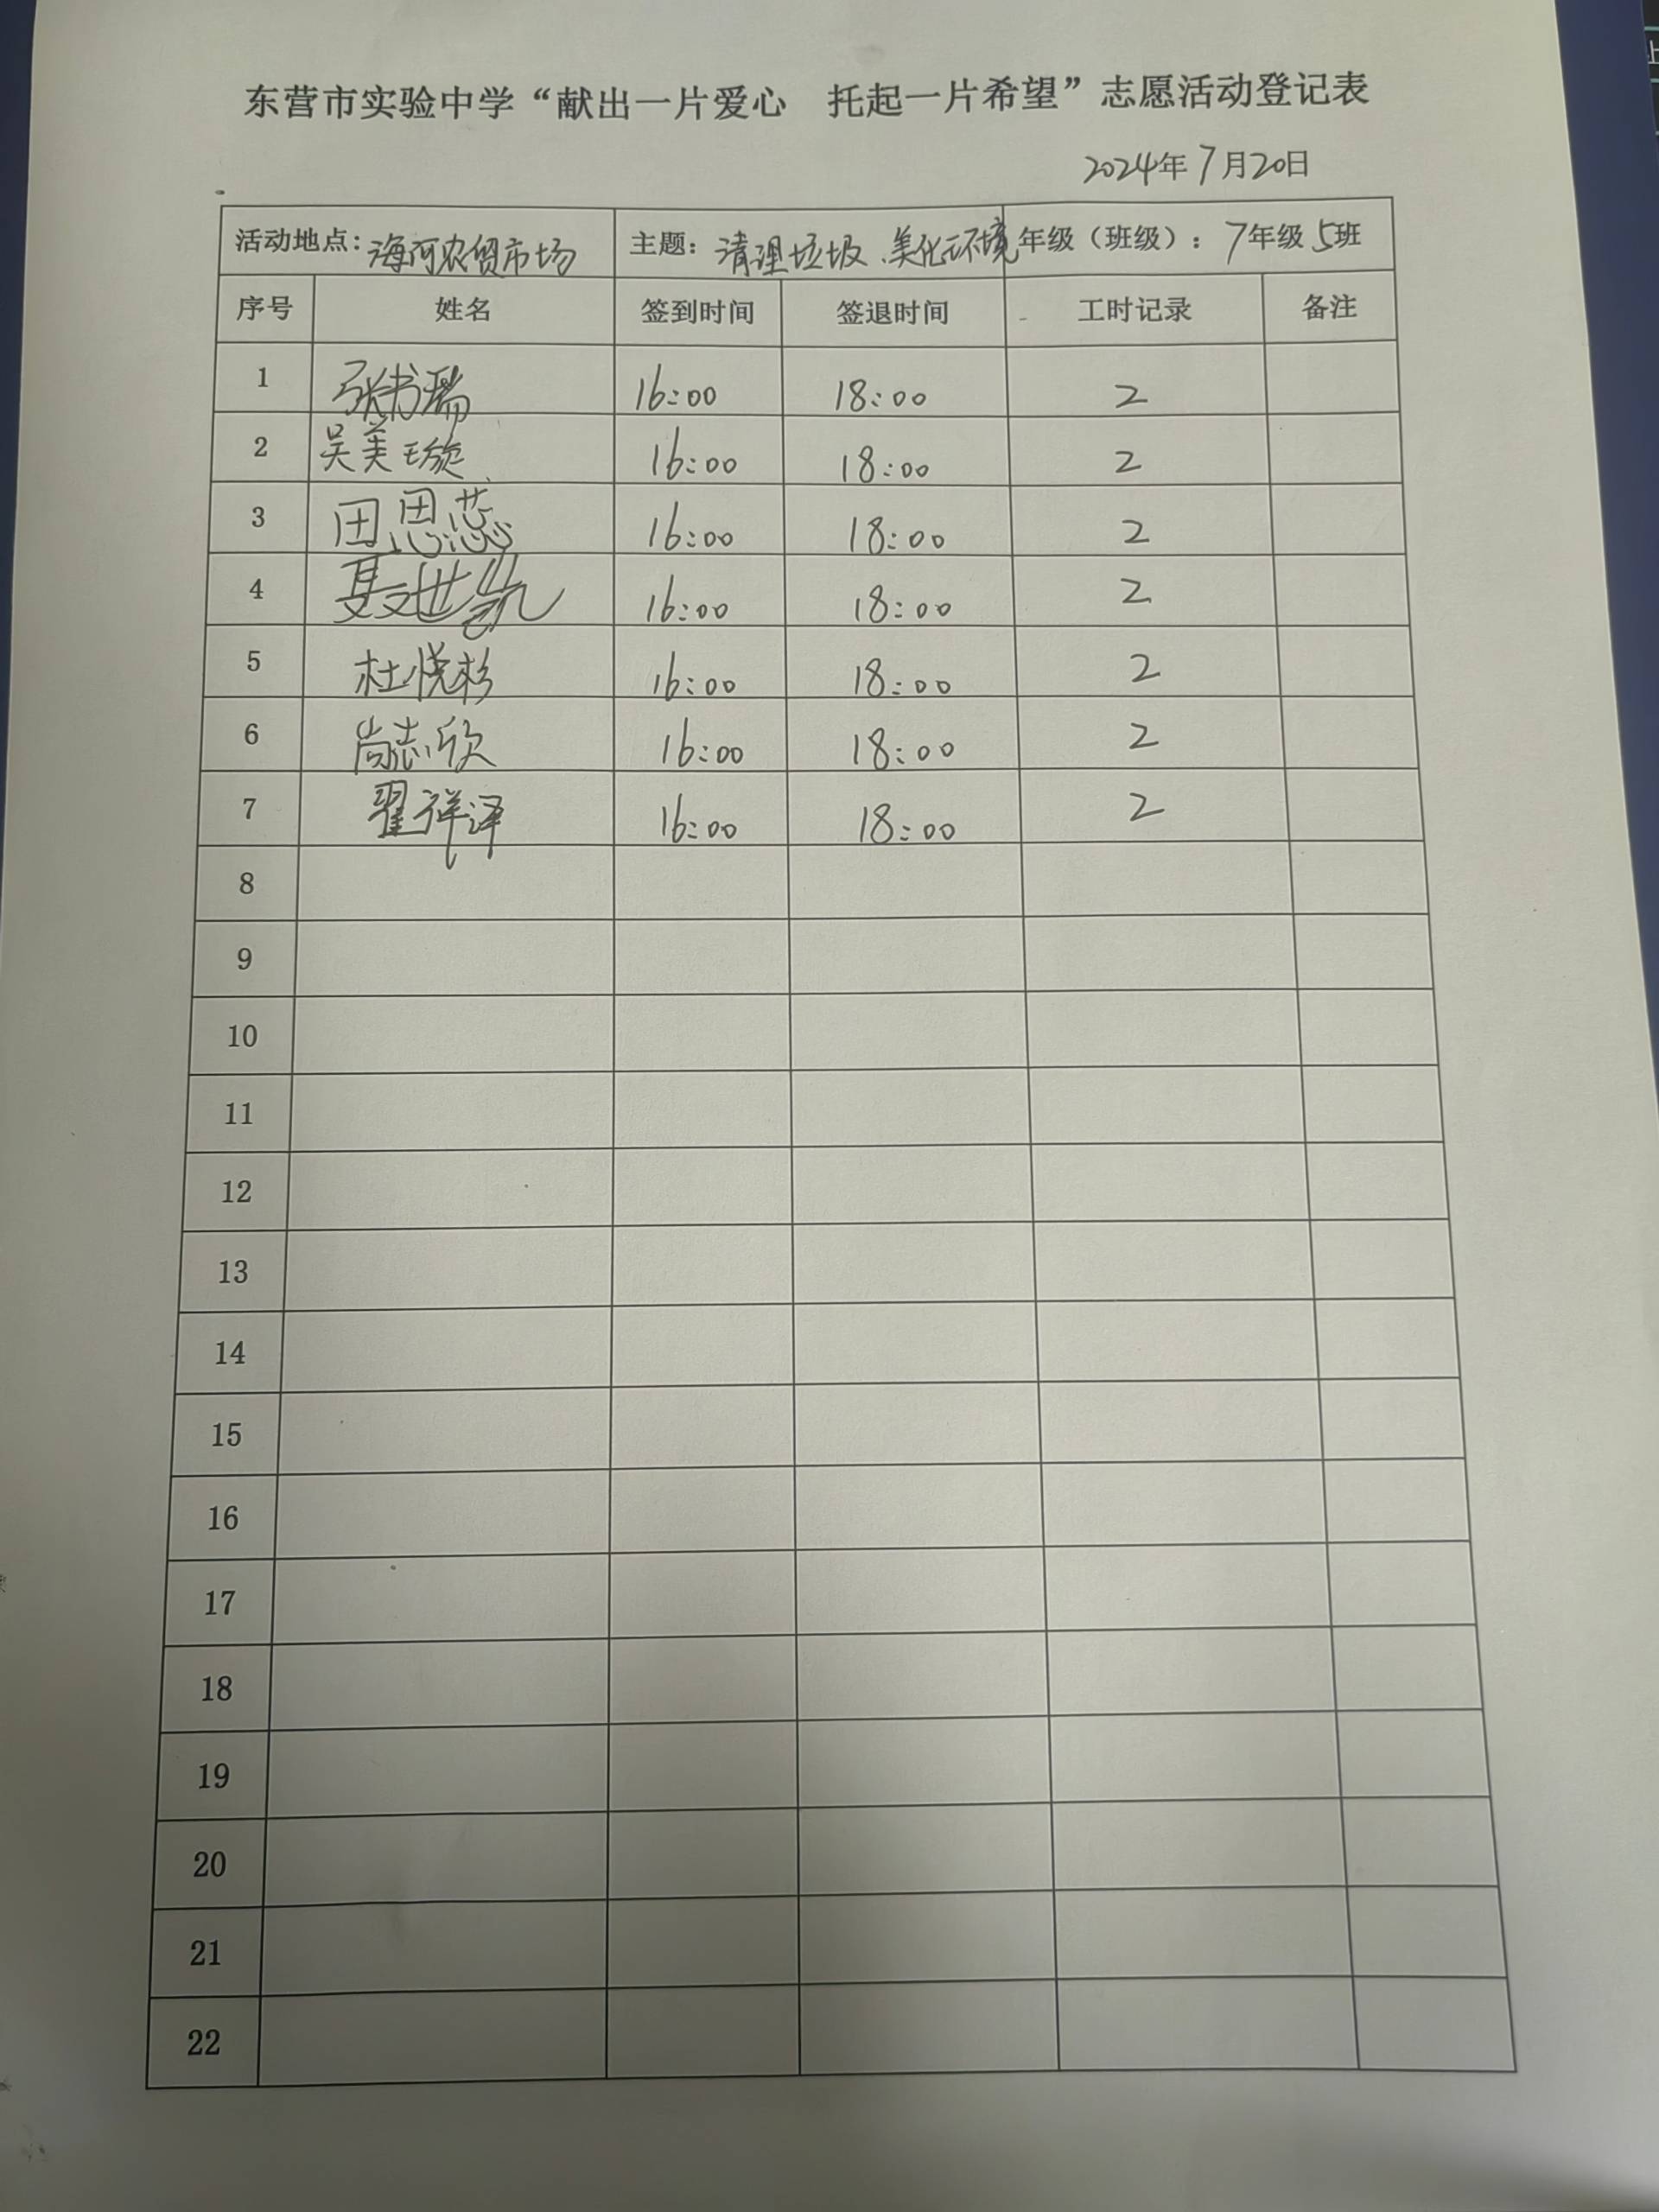 东营市实验中学“献出一片爱心　托起一片希望”志愿活动登记表
2024年7月20日
活动地点：海河农贸市场 主题：清理垃圾、美化环境 年级（班级）：7年级5班
序号 姓名 签到时间 签退时间 工时记录 备注
1 张书瑞 16:00 18:00 2
2 吴美璇 16:00 18:00 2
3 田思蕊 16:00 18:00 2
4 聂世凯 16:00 18:00 2
5 杜悦杉 16:00 18:00 2
6 尚志欣 16:00 18:00 2
7 翟祥泽 16:00 18:00 2
8
9
10
11
12
13
14
15
16
17
18
19
20
21
22